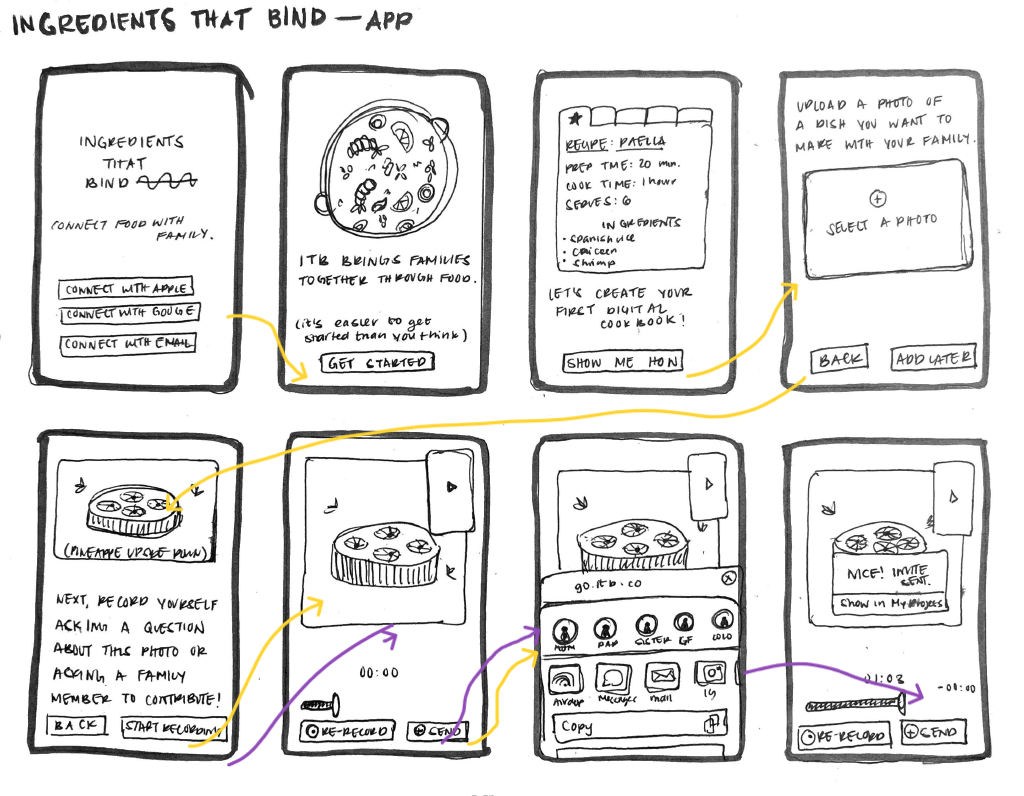 INGREDIENTS THAT BIND — APP
INGREDIENTS
THAT
BIND
CONNECT FOOD WITH
FAMILY.
CONNECT WITH APPLE
CONNECT WITH GOOGE
CONNECT WITH EMAIL
ITB BRINGS FAMILIES
TOGETHER THROUGH FOOD.
(it's easier to get
started than you think)
GET STARTED
RECIPE: PAELLA
PREP TIME: 20 min.
COOK TIME: 1 hour
SERVES: 6
INGREDIENTS
· Spanish rice
· Chicken
· Shrimp
LET'S CREATE YOUR
FIRST DIGITAL
COOKBOOK!
SHOW ME HOW
UPLOAD A PHOTO OF
A DISH YOU WANT TO
MAKE WITH YOUR FAMILY.
SELECT A PHOTO
BACK
ADD LATER
(PINEAPPLE UPSIDE DOWN)
NEXT, RECORD YOURSELF
ASKING A QUESTION
ABOUT THIS PHOTO OR
ASKING A FAMILY
MEMBER TO CONTRIBUTE!
BACK
START RECORDING
00:00
RE-RECORD
SEND
go.itb.co
MOM
DAD
SISTER
GF
LOLO
Airdrop
Messages
mail
IG
Copy
NICE! INVITE
SENT.
Show in My Projects
01:03
-00:00
RE-RECORD
SEND